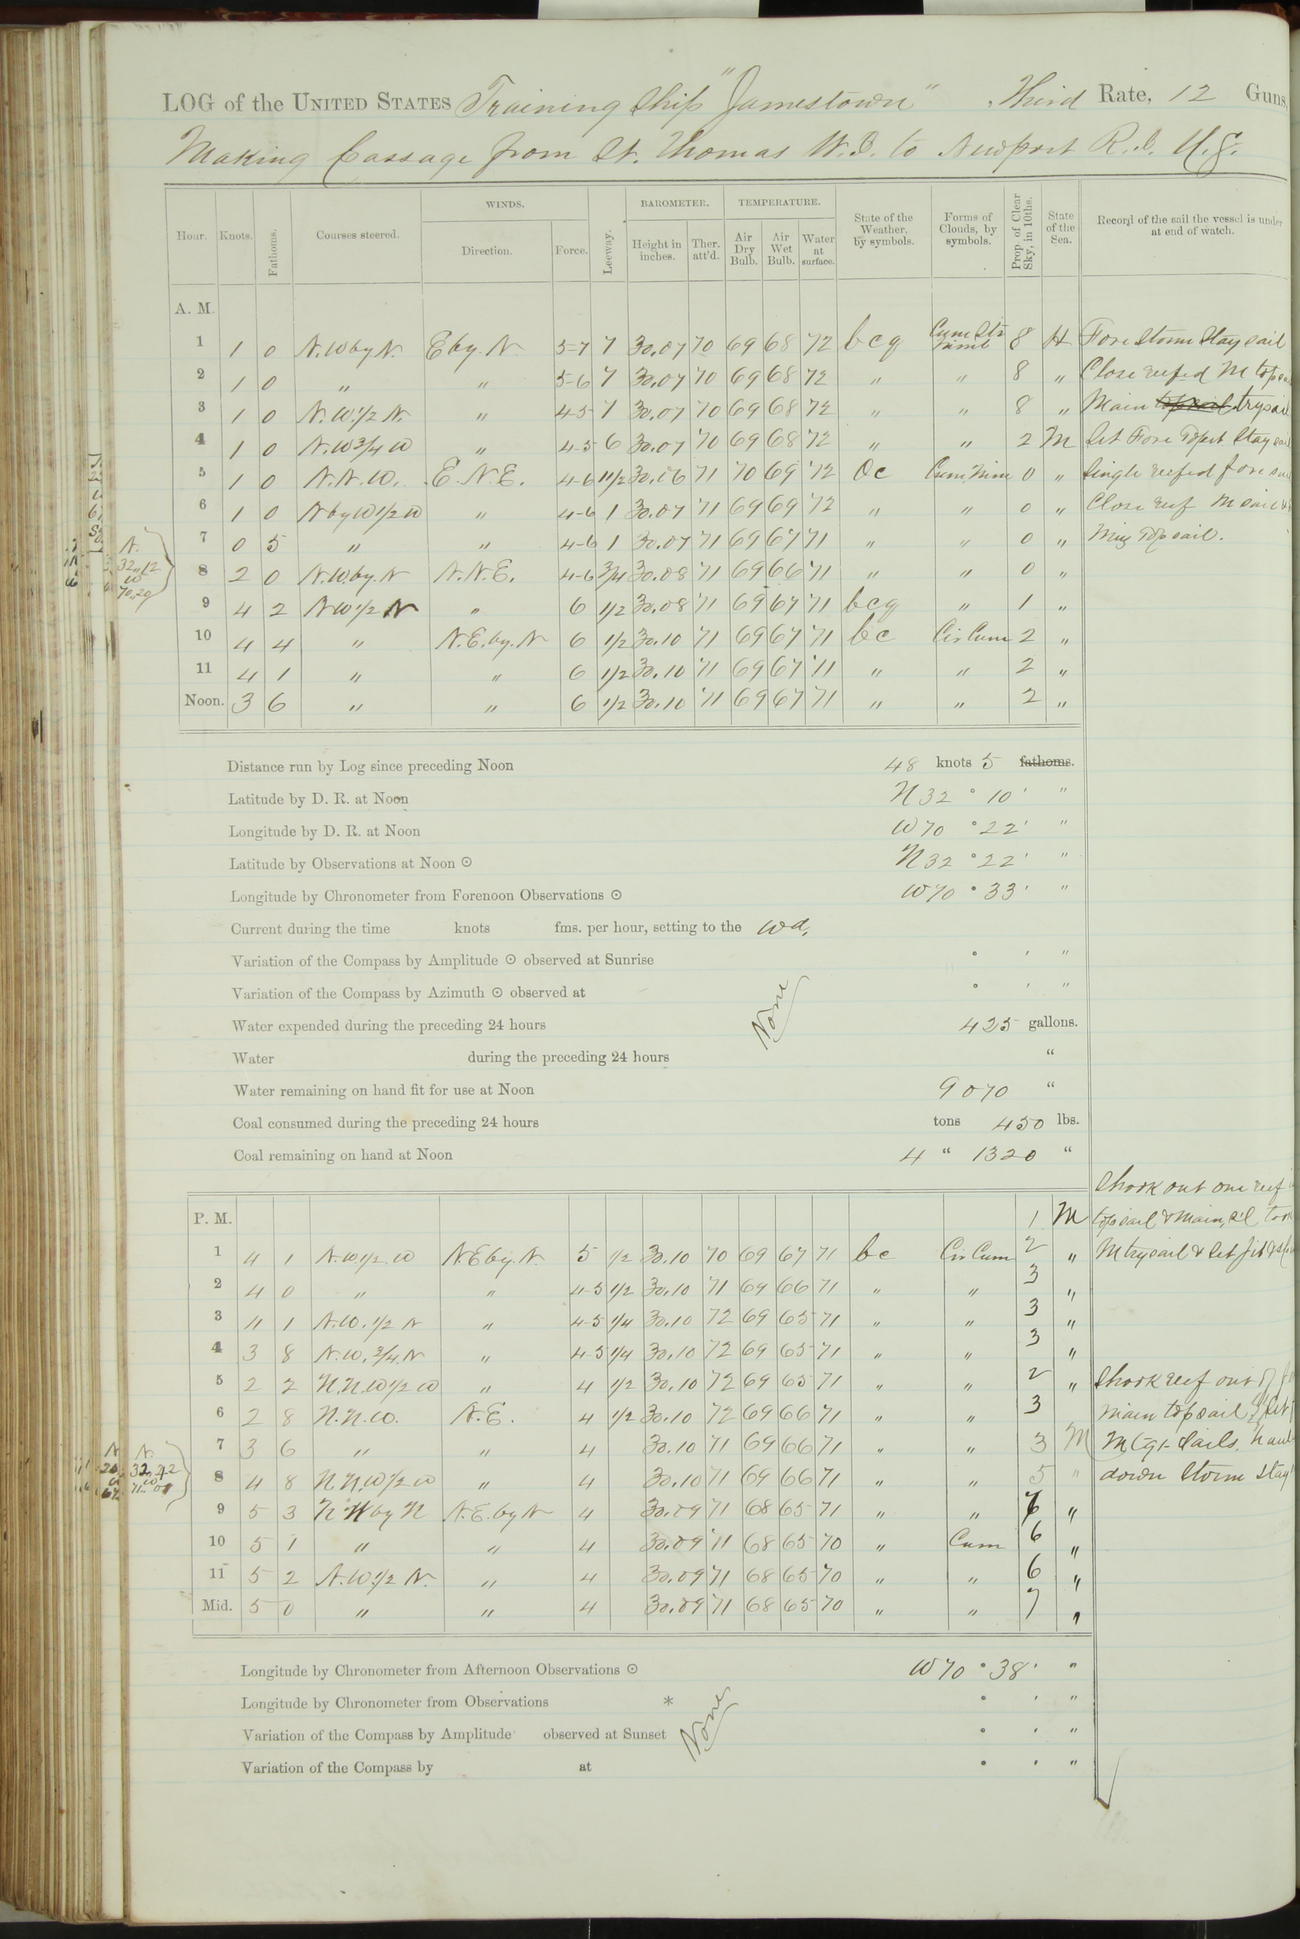 LOG of the UNITED STATES Training Ship "Jamestown" Third Rate, 12 Guns,
Making Passage from St. Thomas W.I. to Newport R.I. U.S.
Hour. Knots. Fathoms. Courses steered. WINDS. Direction. Force. Leeway. BAROMETER. Height in inches. Ther. att'd. TEMPERATURE. Air Dry Bulb. Air Wet Bulb. Water at surface. State of the Weather, by symbols. Forms of Clouds, by symbols. Prop. of Clear Sky, in 10ths. State of the Sea. Record of the sail the vessel is under at end of watch.
A. M.
1 1 0 N.W by N. E by N 5-7 7 30.07 70 69 68 72 bcq Cum Str Nimb 8 H Fore Storm Staysail
2 1 0 " " 5-6 7 30.07 70 69 68 72 " " 8 " Close reefed M topsa
3 1 0 N.W. 1/2 N. " 4-5 7 30.07 70 69 68 72 " " 8 " Main topsail trysai
4 1 0 N.W 3/4 W " 4-5 6 30.07 70 69 68 72 " " 2 M Set Fore Topmt Stay sai
5 1 0 N.N.W. E.N.E. 4-6 1 1/2 30.06 71 70 69 72 Oc Cum Nim 0 " Single reefed fore sai
6 1 0 N by W 1/2 W " 4-6 1 30.07 71 69 69 72 " " 0 " Close reef M sail &
7 0 5 " " 4-6 1 30.07 71 69 67 71 " " 0 " Miz Topsail.
8 2 0 N.W. by N N.N.E. 4-6 3/4 30.08 71 69 66 71 " " 0 "
9 4 2 N W 1/2 N " 6 1/2 30.08 71 69 67 71 bcq " 1 "
10 4 4 " N.E. by N 6 1/2 30.10 71 69 67 71 bc Cir Cum 2 "
11 4 1 " " 6 1/2 30.10 71 69 67 71 " " 2 "
Noon. 3 6 " " 6 1/2 30.10 71 69 67 71 " " 2 "
N. 32,,12 W 70.20
Distance run by Log since preceding Noon 48 knots 5 fathoms.
Latitude by D. R. at Noon N 32 ° 10 ' "
Longitude by D. R. at Noon W 70 ° 22 ' "
Latitude by Observations at Noon ⊙ N 32 ° 22 ' "
Longitude by Chronometer from Forenoon Observations ⊙ W 70 ° 33 ' "
Current during the time knots fms. per hour, setting to the Wd.
Variation of the Compass by Amplitude ⊙ observed at Sunrise ° ' "
Variation of the Compass by Azimuth ⊙ observed at ° ' "
None
Water expended during the preceding 24 hours 425 gallons.
Water during the preceding 24 hours "
Water remaining on hand fit for use at Noon 9070 "
Coal consumed during the preceding 24 hours tons 450 lbs.
Coal remaining on hand at Noon 4 " 1320 "
Shook out one reef
P. M. 1 M topsail & main s'l took
1 4 1 N.W 1/2 W N.E by N. 5 1/2 30.10 70 69 67 71 bc Cir Cum 2 " M trysail & set jib &
2 4 0 " " 4-5 1/2 30.10 71 69 66 71 " " 3 "
3 4 1 N.W. 1/2 N " 4-5 1/4 30.10 72 69 65 71 " " 3 "
4 3 8 N.W. 3/4 N " 4-5 1/4 30.10 72 69 65 71 " " 3 "
5 2 2 N.N.W 1/2 W " 4 1/2 30.10 72 69 65 71 " " 2 " Shook reef out of
6 2 8 N.N.W. N.E. 4 1/2 30.10 72 69 66 71 " " 3 main topsail, & set
7 3 6 " " 4 30.10 71 69 66 71 " " 3 M M tg't Sails, haul
8 4 8 N N.W 1/2 W " 4 30.10 71 69 66 71 " " 5 " down Storm Stay
9 5 3 N W by N N.E. by N 4 30.09 71 68 65 71 " " 6 "
10 5 1 " " 4 30.09 71 68 65 70 " Cum 6 "
11 5 2 N.W. 1/2 N. " 4 30.09 71 68 65 70 " " 6 "
Mid. 5 0 " " 4 30.09 71 68 65 70 " " 7 "
N. 32,,42 W 71..01
Longitude by Chronometer from Afternoon Observations ⊙ W 70 ° 38 ' "
Longitude by Chronometer from Observations * ° ' "
Variation of the Compass by Amplitude observed at Sunset ° ' "
None
Variation of the Compass by at ° ' "